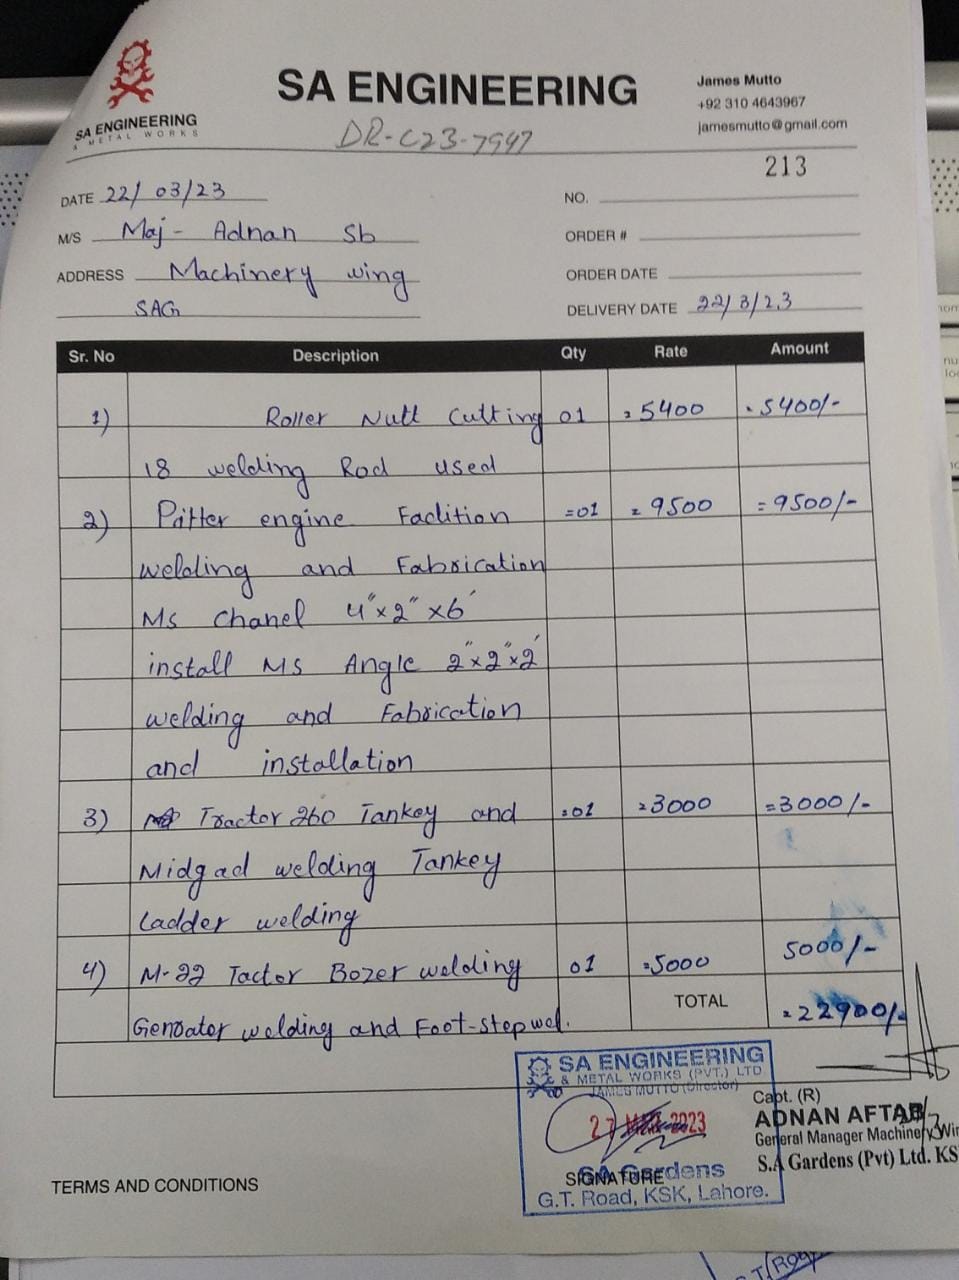 SA ENGINEERING
& METAL WORKS
SA ENGINEERING
DR-C23-7947
James Mutto
+92 310 4643967
jamesmutto@gmail.com
213
DATE 22/03/23
NO.
M/S Maj- Adnan Sb
ORDER #
ADDRESS Machinery wing
ORDER DATE
SAG
DELIVERY DATE 22/3/23
Sr. No Description Qty Rate Amount
1) Roller Nutt Cutting 01 =5400 =5400/-
18 welding Rod used
2) Pitter engine Faclition =01 =9500 =9500/-
welding and Fabrication
Ms Chanel 4"x2"x6'
install Ms Angle 2"x2"x2'
welding and Fabrication
and installation
3) Tractor 260 Tankey and =01 =3000 =3000/-
Midgad welding Tankey
Ladder welding
4) M-22 Tactor Bozer welding 01 =5000 5000/-
Genoator welding and Foot-step wel.
TOTAL =22900/-
SA ENGINEERING
& METAL WORKS (PVT.) LTD
JAMES MUTTO (Director)
27 MAR 2023
SIGNATURE
SA Gardens
G.T. Road, KSK, Lahore.
Capt. (R)
ADNAN AFTAB
General Manager Machinery Win
S.A Gardens (Pvt) Ltd. KS
TERMS AND CONDITIONS